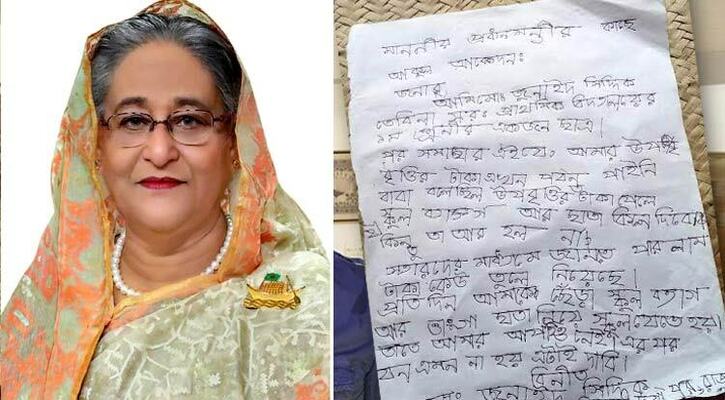 মাননীয় প্রধানমন্ত্রীর কাছে
আকুল আবেদন:
জনাব
আমি মোঃ জুনাইদ সিদ্দিক
সরঃ প্রাথমিক বিদ্যালয়ের
শ্রেনীর একজন ছাত্র।
পর সমাচার এইযে, আমার উপবৃ
বৃত্তির টাকা এখন পর্যন্ত পাইনি
বাবা বলেছিল উপবৃত্তির টাকা পেলে
স্কুল ব্যাগ আর ছাতা কিনে দিবেন
কিন্তু তা আর হল না;
স্যারদের মাধ্যমে জানতে পারলাম
টাকা কেউ তুলে নিয়েছে।
প্রতি দিন আমাকে ছেঁড়া স্কুল ব্যাগ
আর ভাংগা ছাতা নিয়ে স্কুলে যেতে হয়।
তাতে আমার আপত্তি নেই। এর পর
যেন এমন না হয় এটাই দাবি।
বিনীত
মোঃ জুনাইদ সিদ্দিক